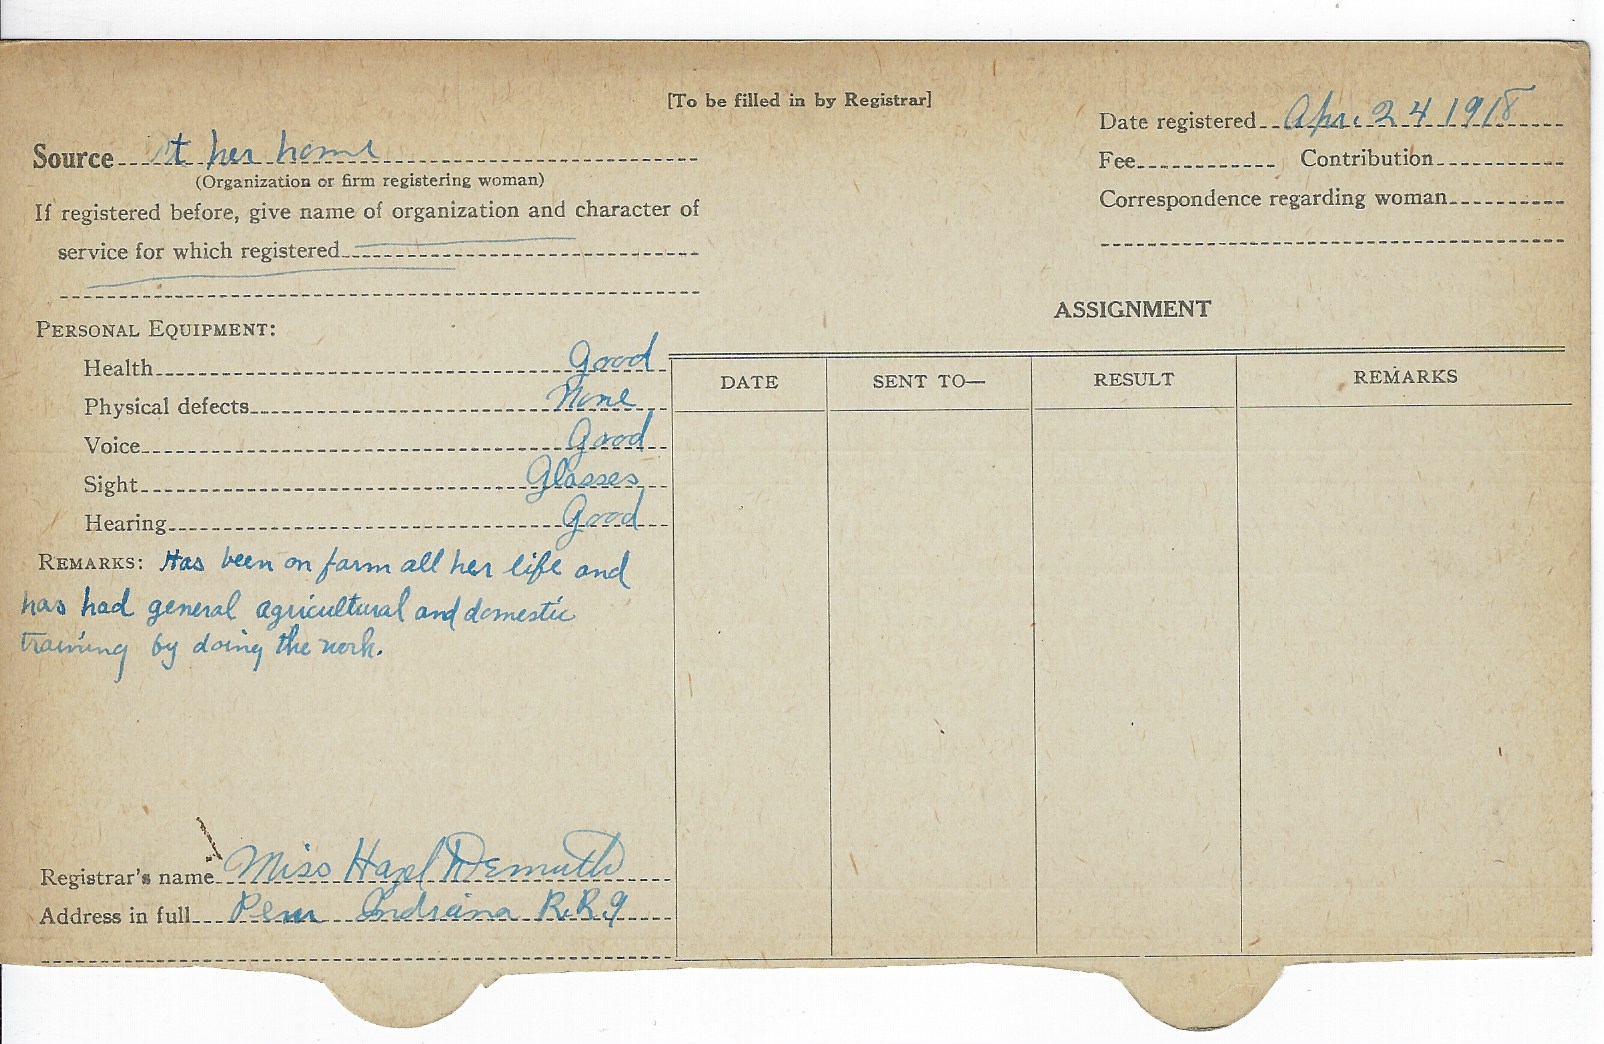 [To be filled in by Registrar]
Date registered Apr. 24 1918
Source At her home
Fee Contribution
(Organization or firm registering woman)
Correspondence regarding woman
If registered before, give name of organization and character of
service for which registered
ASSIGNMENT
PERSONAL EQUIPMENT:
Health Good
Physical defects None
Voice Good
Sight Glasses
Hearing Good
DATE SENT TO— RESULT REMARKS
REMARKS: Has been on farm all her life and
has had general agricultural and domestic
training by doing the work.
Registrar's name Miss Hazel Demuth
Address in full Peru Indiana R.R.9